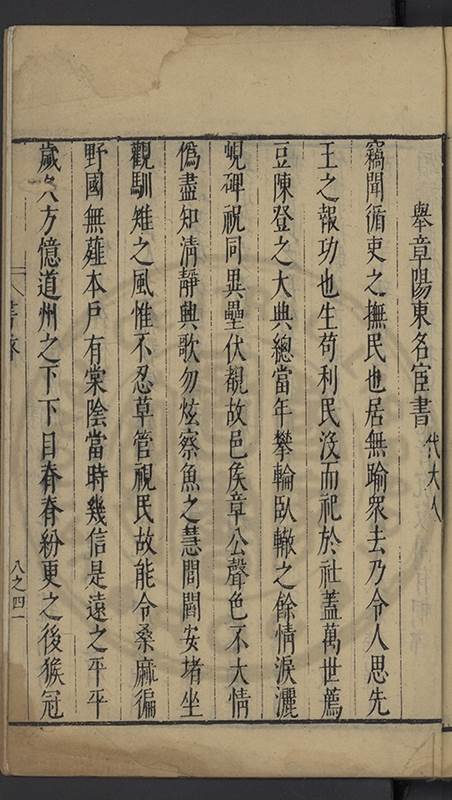 舉章陽東名宦書 代大人
竊聞循吏之撫民也居無踰衆去乃令人思先
王之報功也生苟利民沒而祀於社蓋萬世薦
豆陳登之大典總當年攀輪臥轍之餘情淚灑
峴碑祝同異壘伏覩故邑矦章公聲色不大情
僞盡知清靜興歌勿炫察魚之慧閭閻安堵坐
觀馴雉之風惟不忍草菅視民故能令桑麻徧
野國無薤本戶有棠陰當時幾信是遠之平平
歲久方憶道州之下下目脊脊紛更之後猴冠
八之四一